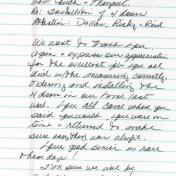 Re: Installation of 4 doors
Attention: Dollar, Ricky, Reid
We want to thank you
again & express our appreciation
for the excellent job you all
did w/the measuring correctly,
ordering and installing the
4 doors in our home last
week. You all came when you
said you would. You were on
time & returned to make
sure everything was alright.
Your good service is rare
these days.
I'm sure we will be